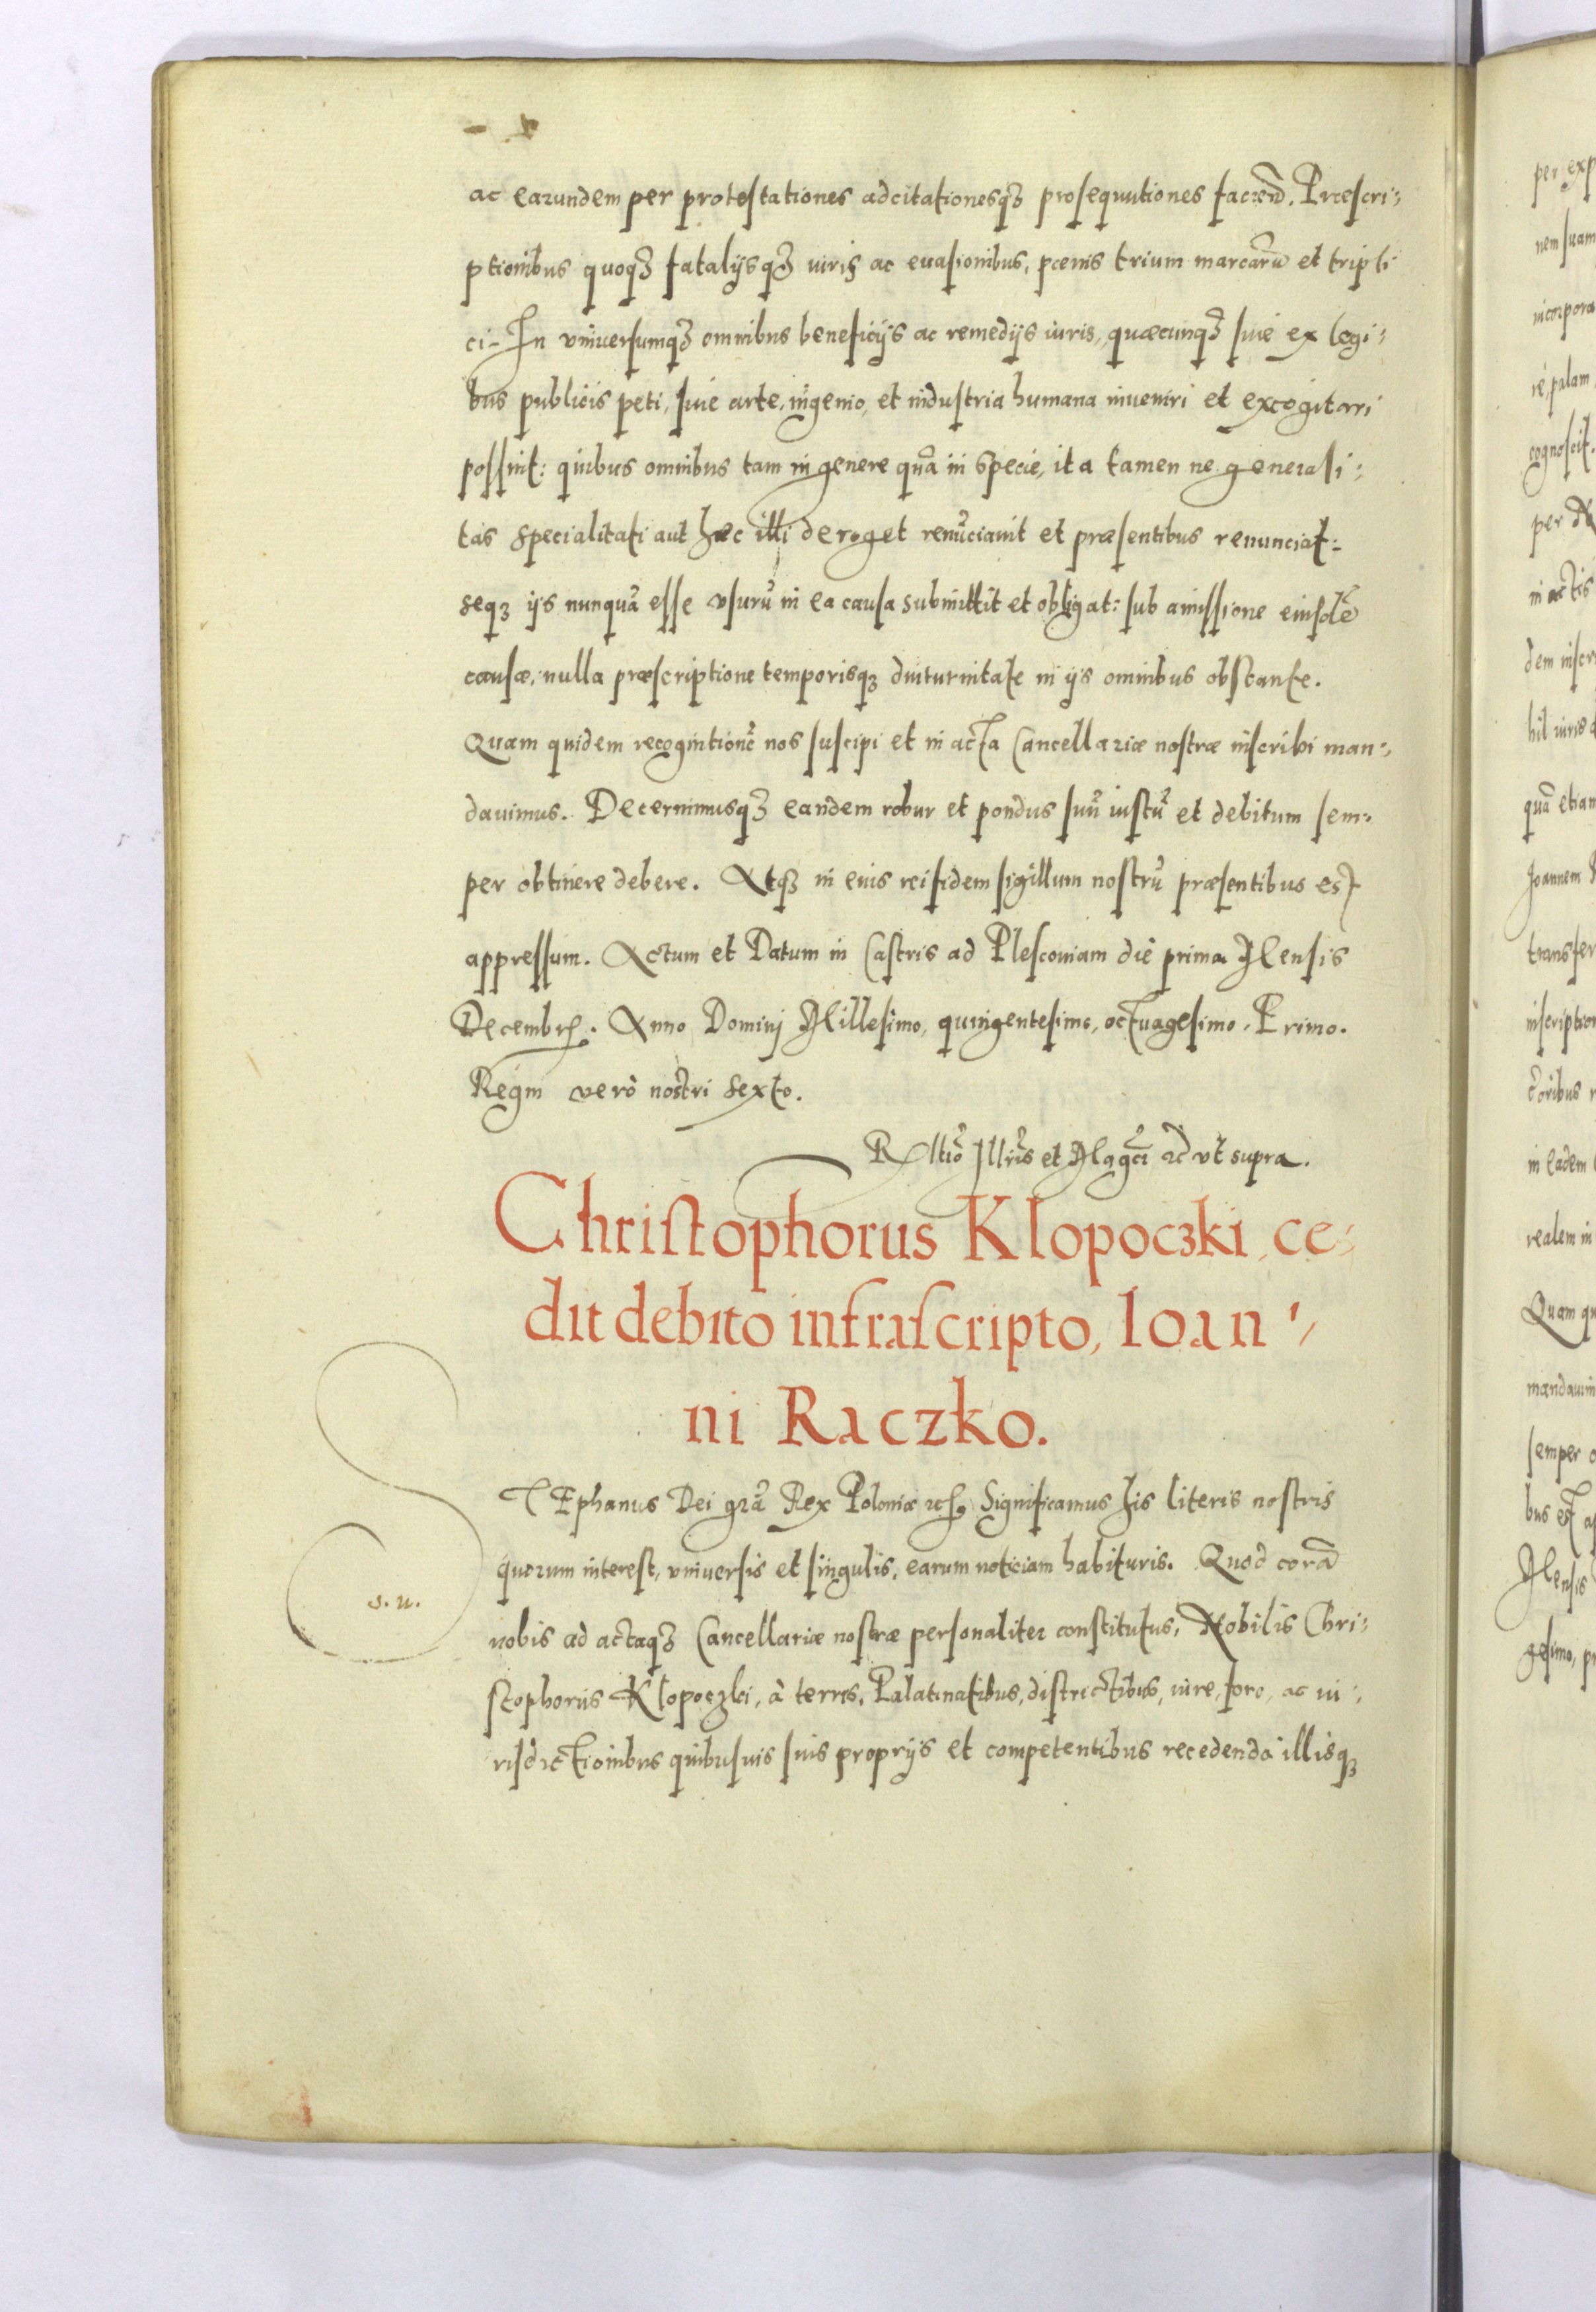 ac earundem per protestationes adcitationesqȝ prosequutiones faciend̃. Præscri⸗
ptionibus quoqȝ fatalijsqȝ iuris ac euasionibus, pœnis trium marcarũ et tripli
ci. In vniuersumqȝ omnibus beneficijs ac remedijs iuris, quæcunqȝ siue ex legi⸗
bus publicis peti, siue arte, ingenio, et industria humana inueniri et excogitari
possint: quibus omnibus tam in genere quã in specie, ita tamen ne generali⸗
tas specialitati aut hæc illi deroget renũciauit et præsentibus renunciat:
seqȝ ijs nunquã esse vsurũ in ea causa submittit et obligat: sub amissione eiusdẽ
causæ, nulla præscriptione temporisqȝ diuturnitate in ijs omnibus obstante.
Quam quidem recognitionẽ nos suscipi et in acta Cancellariæ nostræ inscribi man⸗
dauimus. Decernimusqȝ eandem robur et pondus suũ iustũ et debitum sem⸗
per obtinere debere. Atqȝ in eius rei fidem sigillum nostrũ præsentibus est
appressum. Actum et Datum in Castris ad Plesconiam die prima Mensis
Decembr. Anno Domini Millesimo, quingentesimo, octuagesimo, Primo.
Regni verò nostri sexto.
Rltiõ Illris et Magci ꝛc vt supra.
Christophorus Klopoczki, ce⸗
dit debito infrascripto, Ioan⸗
ni Raczko.
STEphanus Dei grã Rex Poloniæ ꝛc. Significamus his literis nostris
s. u.
quorum interest, vniuersis et singulis, earum noticiam habituris. Quod corã
nobis ad actaqȝ Cancellariæ nostræ personaliter constitutus, Nobilis Chri⸗
stophorus Klopoczki, à terris, Palatinatibus, districtibus, iure, foro, ac iu⸗
risdictionibus quibusuis suis proprijs et competentibus recedendo illisqȝ
per exp
nem suam
incorpora
re, palam
cognoscit.
per
in actis
dem inscr
hil iuris
quã etiam
Joannem
transfer
inscription
ctoribus
in eadem
realem in
Quam qu
mandauim
semper o
bus est ap
Mensis
gesimo, pr